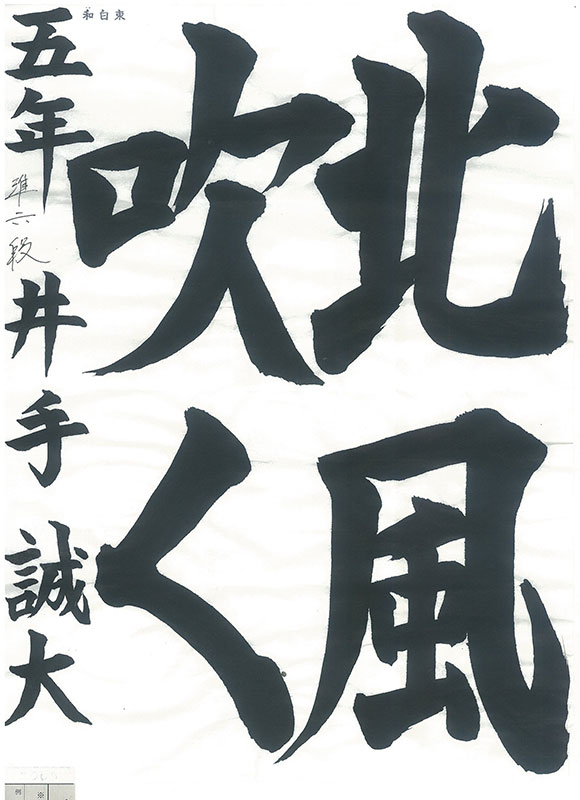 東白和
北風
吹く
五年 準六段 井手誠大
例 ※